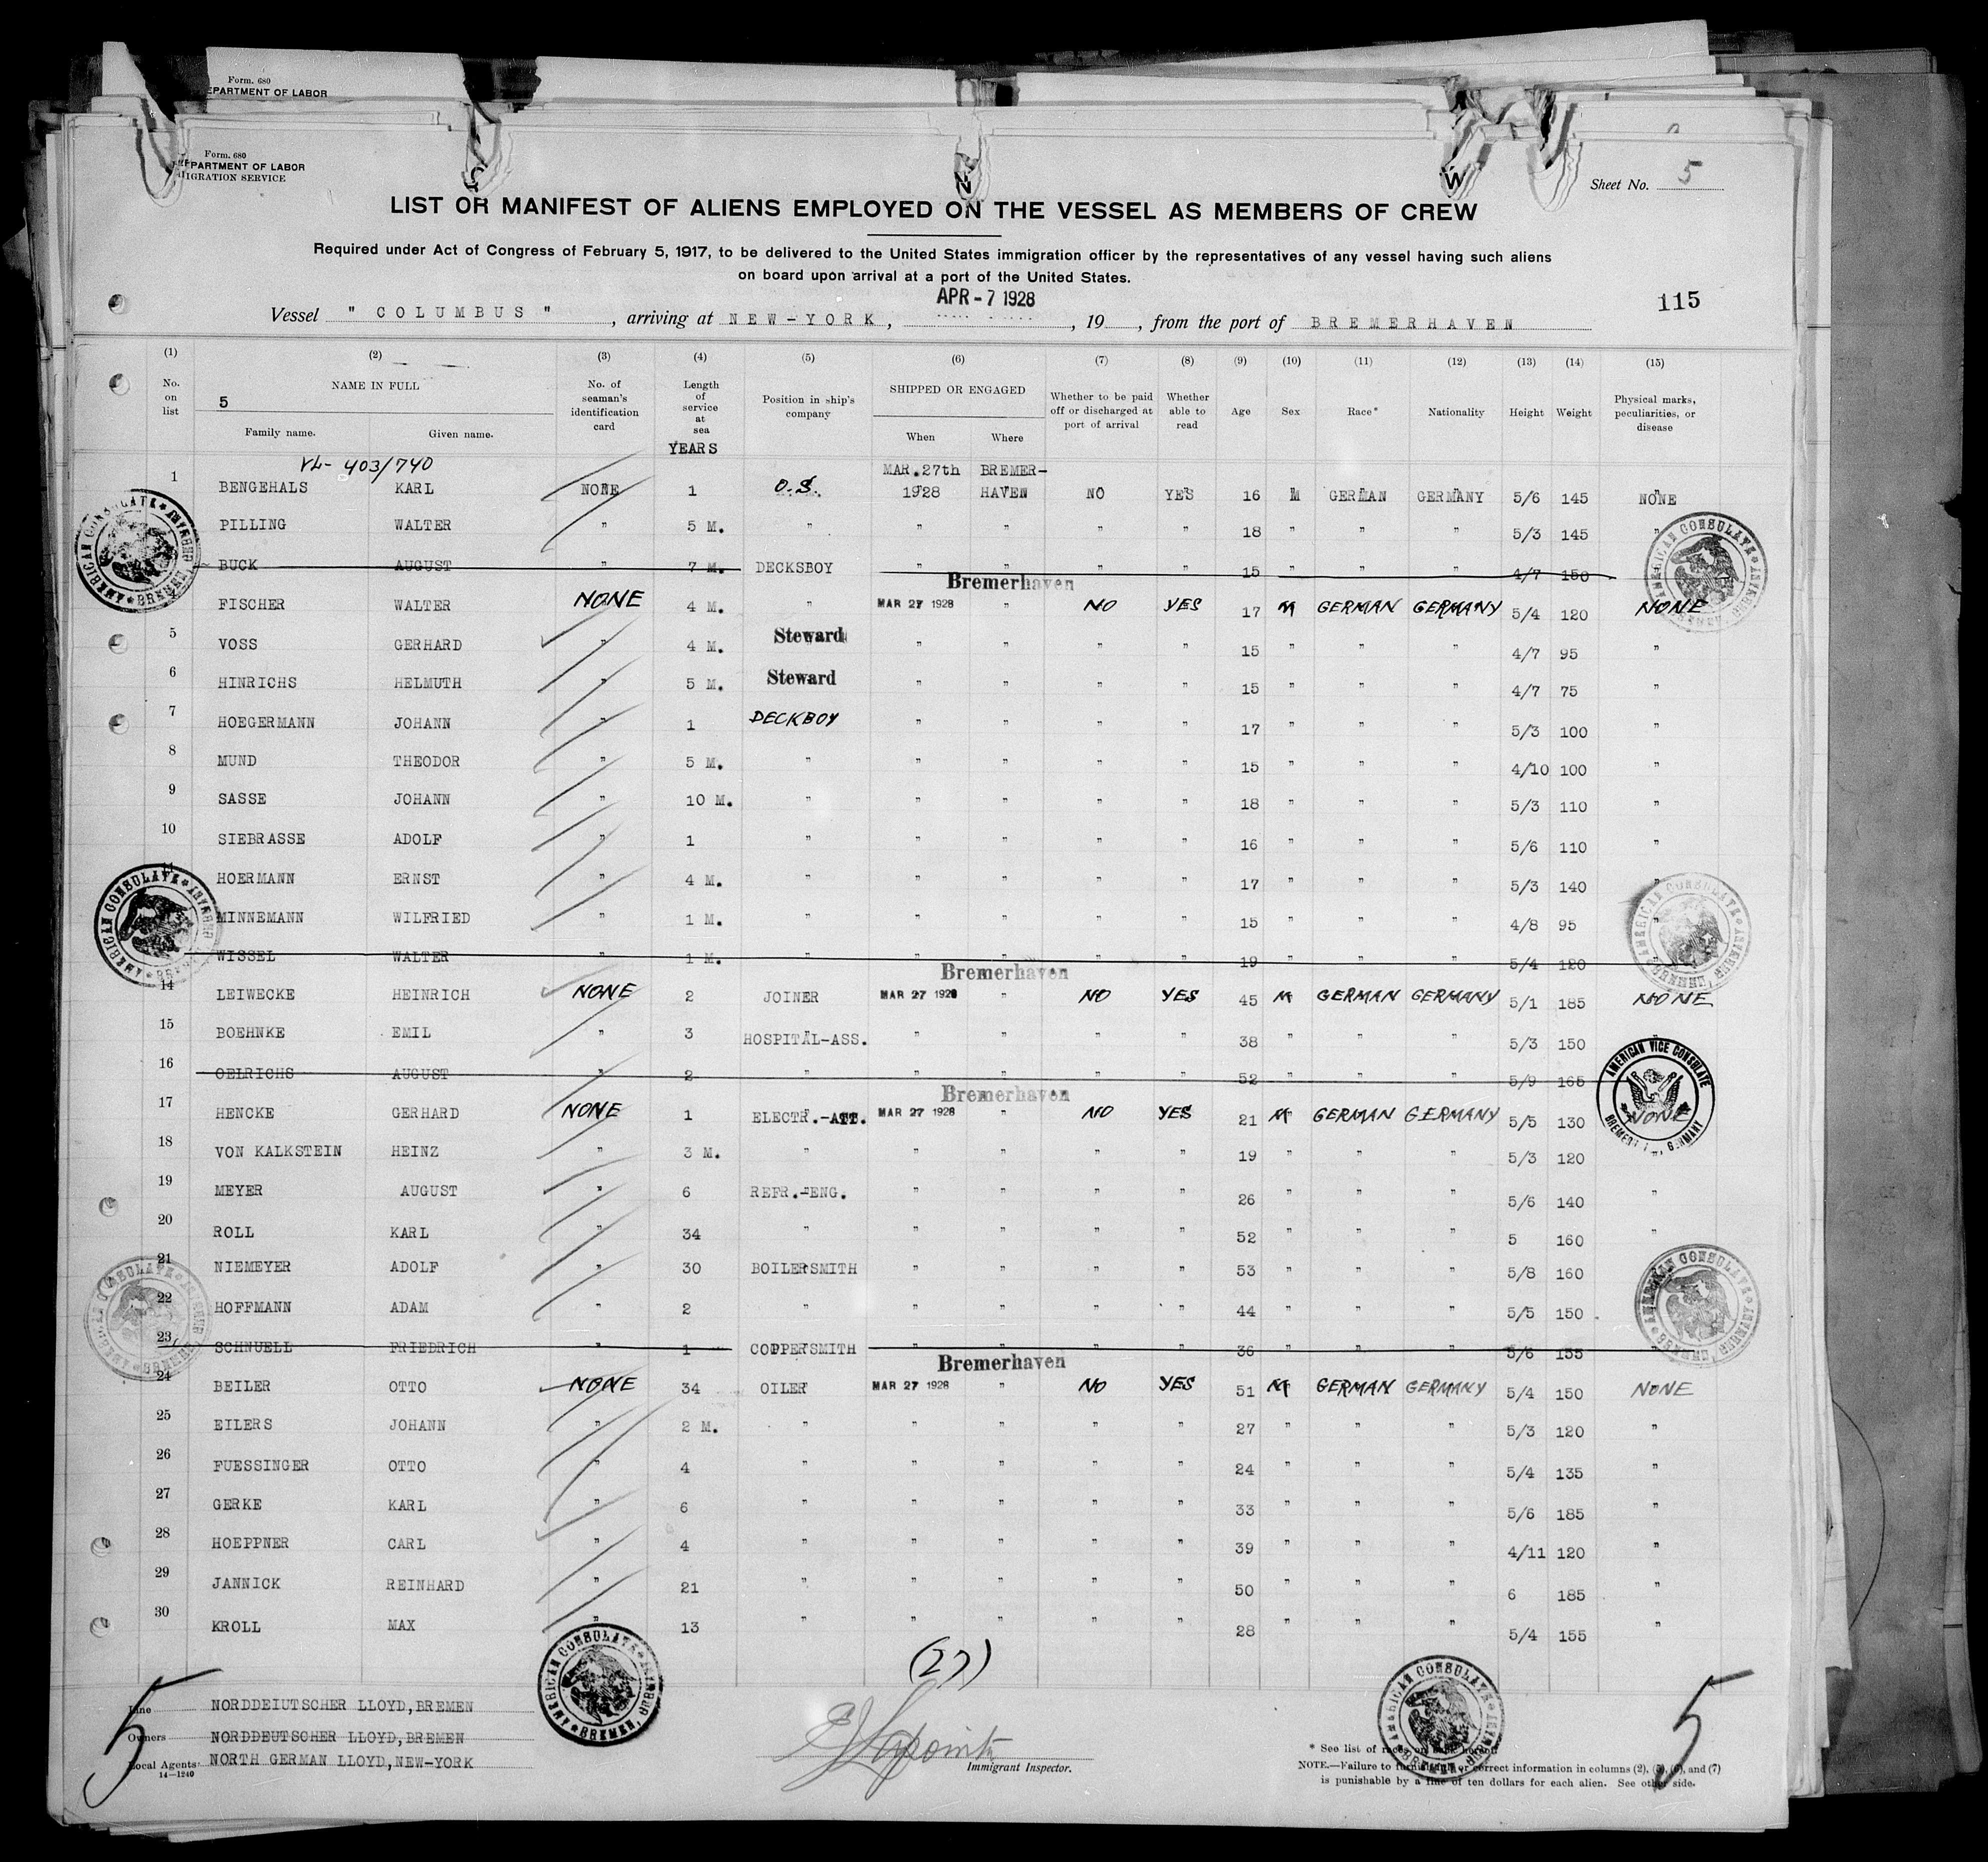 Form. 680
EPARTMENT OF LABOR
Form. 680
PARTMENT OF LABOR
IGRATION SERVICE
Sheet No. 5
LIST OR MANIFEST OF ALIENS EMPLOYED ON THE VESSEL AS MEMBERS OF CREW
Required under Act of Congress of February 5, 1917, to be delivered to the United States immigration officer by the representatives of any vessel having such aliens
on board upon arrival at a port of the United States.
APR - 7 1928
115
Vessel " COLUMBUS " , arriving at NEW-YORK, , 19 , from the port of BREMERHAVEN
(1) (2) (3) (4) (5) (6) (7) (8) (9) (10) (11) (12) (13) (14) (15)
No. on list NAME IN FULL No. of seaman's identification card Length of service at sea Position in ship's company SHIPPED OR ENGAGED Whether to be paid off or discharged at port of arrival Whether able to read Age Sex Race* Nationality Height Weight Physical marks, peculiarities, or disease
5
Family name. Given name. When Where
YEARS
403/740 MAR.27th BREMER-
1 BENGEHALS KARL NONE 1 O.S. 1928 HAVEN NO YES 16 M GERMAN GERMANY 5/6 145 NONE
PILLING WALTER " 5 M. " " " " " 18 " " " 5/3 145 "
BUCK AUGUST " 7 M. DECKSBOY " " " " 15 " " " 4/7 150
Bremerhaven
FISCHER WALTER NONE 4 M. " MAR 27 1928 " NO YES 17 M GERMAN GERMANY 5/4 120 NONE
5 VOSS GERHARD " 4 M. Steward " " " " 15 " " " 4/7 95 "
6 HINRICHS HELMUTH " 5 M. Steward " " " " 15 " " " 4/7 75 "
7 HOEGERMANN JOHANN " 1 DECKBOY " " " " 17 " " " 5/3 100 "
8 MUND THEODOR " 5 M. " " " " " 15 " " " 4/10 100 "
9 SASSE JOHANN " 10 M. " " " " " 18 " " " 5/3 110 "
10 SIEBRASSE ADOLF " 1 " " " " " 16 " " " 5/6 110 "
11 HOERMANN ERNST " 4 M. " " " " " 17 " " " 5/3 140 "
MINNEMANN WILFRIED " 1 M. " " " " " 15 " " " 4/8 95 "
WISSEL WALTER " 1 M. " " " " " 19 " " " 5/4 120
Bremerhaven
14 LEIWECKE HEINRICH NONE 2 JOINER MAR 27 1928 " NO YES 45 M GERMAN GERMANY 5/1 185 NONE
15 BOEHNKE EMIL " 3 HOSPITAL-ASS. " " " " 38 " " " 5/3 150 "
16 OELRICHS AUGUST " 2 " " " " " 52 " " " 5/9 165
Bremerhaven
17 HENCKE GERHARD NONE 1 ELECTR.-ATT. MAR 27 1928 " NO YES 21 M GERMAN GERMANY 5/5 130 NONE
18 VON KALKSTEIN HEINZ " 3 M. " " " " " 19 " " " 5/3 120
19 MEYER AUGUST " 6 REFR.-ENG. " " " " 26 " " " 5/6 140 "
20 ROLL KARL " 34 " " " " " 52 " " " 5 160 "
21 NIEMEYER ADOLF " 30 BOILERSMITH " " " " 53 " " " 5/8 160
22 HOFFMANN ADAM " 2 " " " " " 44 " " " 5/5 150
23 SCHNUELL FRIEDRICH " 1 COPPERSMITH " " " " 36 " " " 5/6 155
Bremerhaven
24 BEILER OTTO NONE 34 OILER MAR 27 1928 " NO YES 51 M GERMAN GERMANY 5/4 150 NONE
25 EILERS JOHANN " 2 M. " " " " " 27 " " " 5/3 120 "
26 FUESSINGER OTTO " 4 " " " " " 24 " " " 5/4 135 "
27 GERKE KARL " 6 " " " " " 33 " " " 5/6 185 "
28 HOEPPNER CARL " 4 " " " " " 39 " " " 4/11 120 "
29 JANNICK REINHARD " 21 " " " " " 50 " " " 6 185 "
30 KROLL MAX " 13 " " " " " 28 " " " 5/4 155 "
(27)
AMERICAN CONSULATE BREMEN, GERMANY
AMERICAN VICE CONSULATE
5
Line NORDDEIUTSCHER LLOYD, BREMEN
Owners NORDDEUTSCHER LLOYD, BREMEN
Local Agents NORTH GERMAN LLOYD, NEW-YORK
14—1240
Immigrant Inspector.
* See list of races on back hereof.
NOTE.—Failure to furnish full or correct information in columns (2), (5), (6), and (7)
is punishable by a fine of ten dollars for each alien. See other side.
5